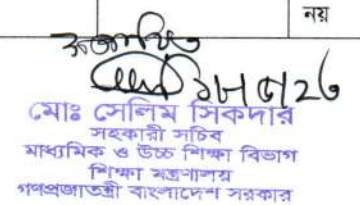 নয়
মোঃ সেলিম সিকদার
সহকারী সচিব
মাধ্যমিক ও উচ্চ শিক্ষা বিভাগ
শিক্ষা মন্ত্রণালয়
গণপ্রজাতন্ত্রী বাংলাদেশ সরকার